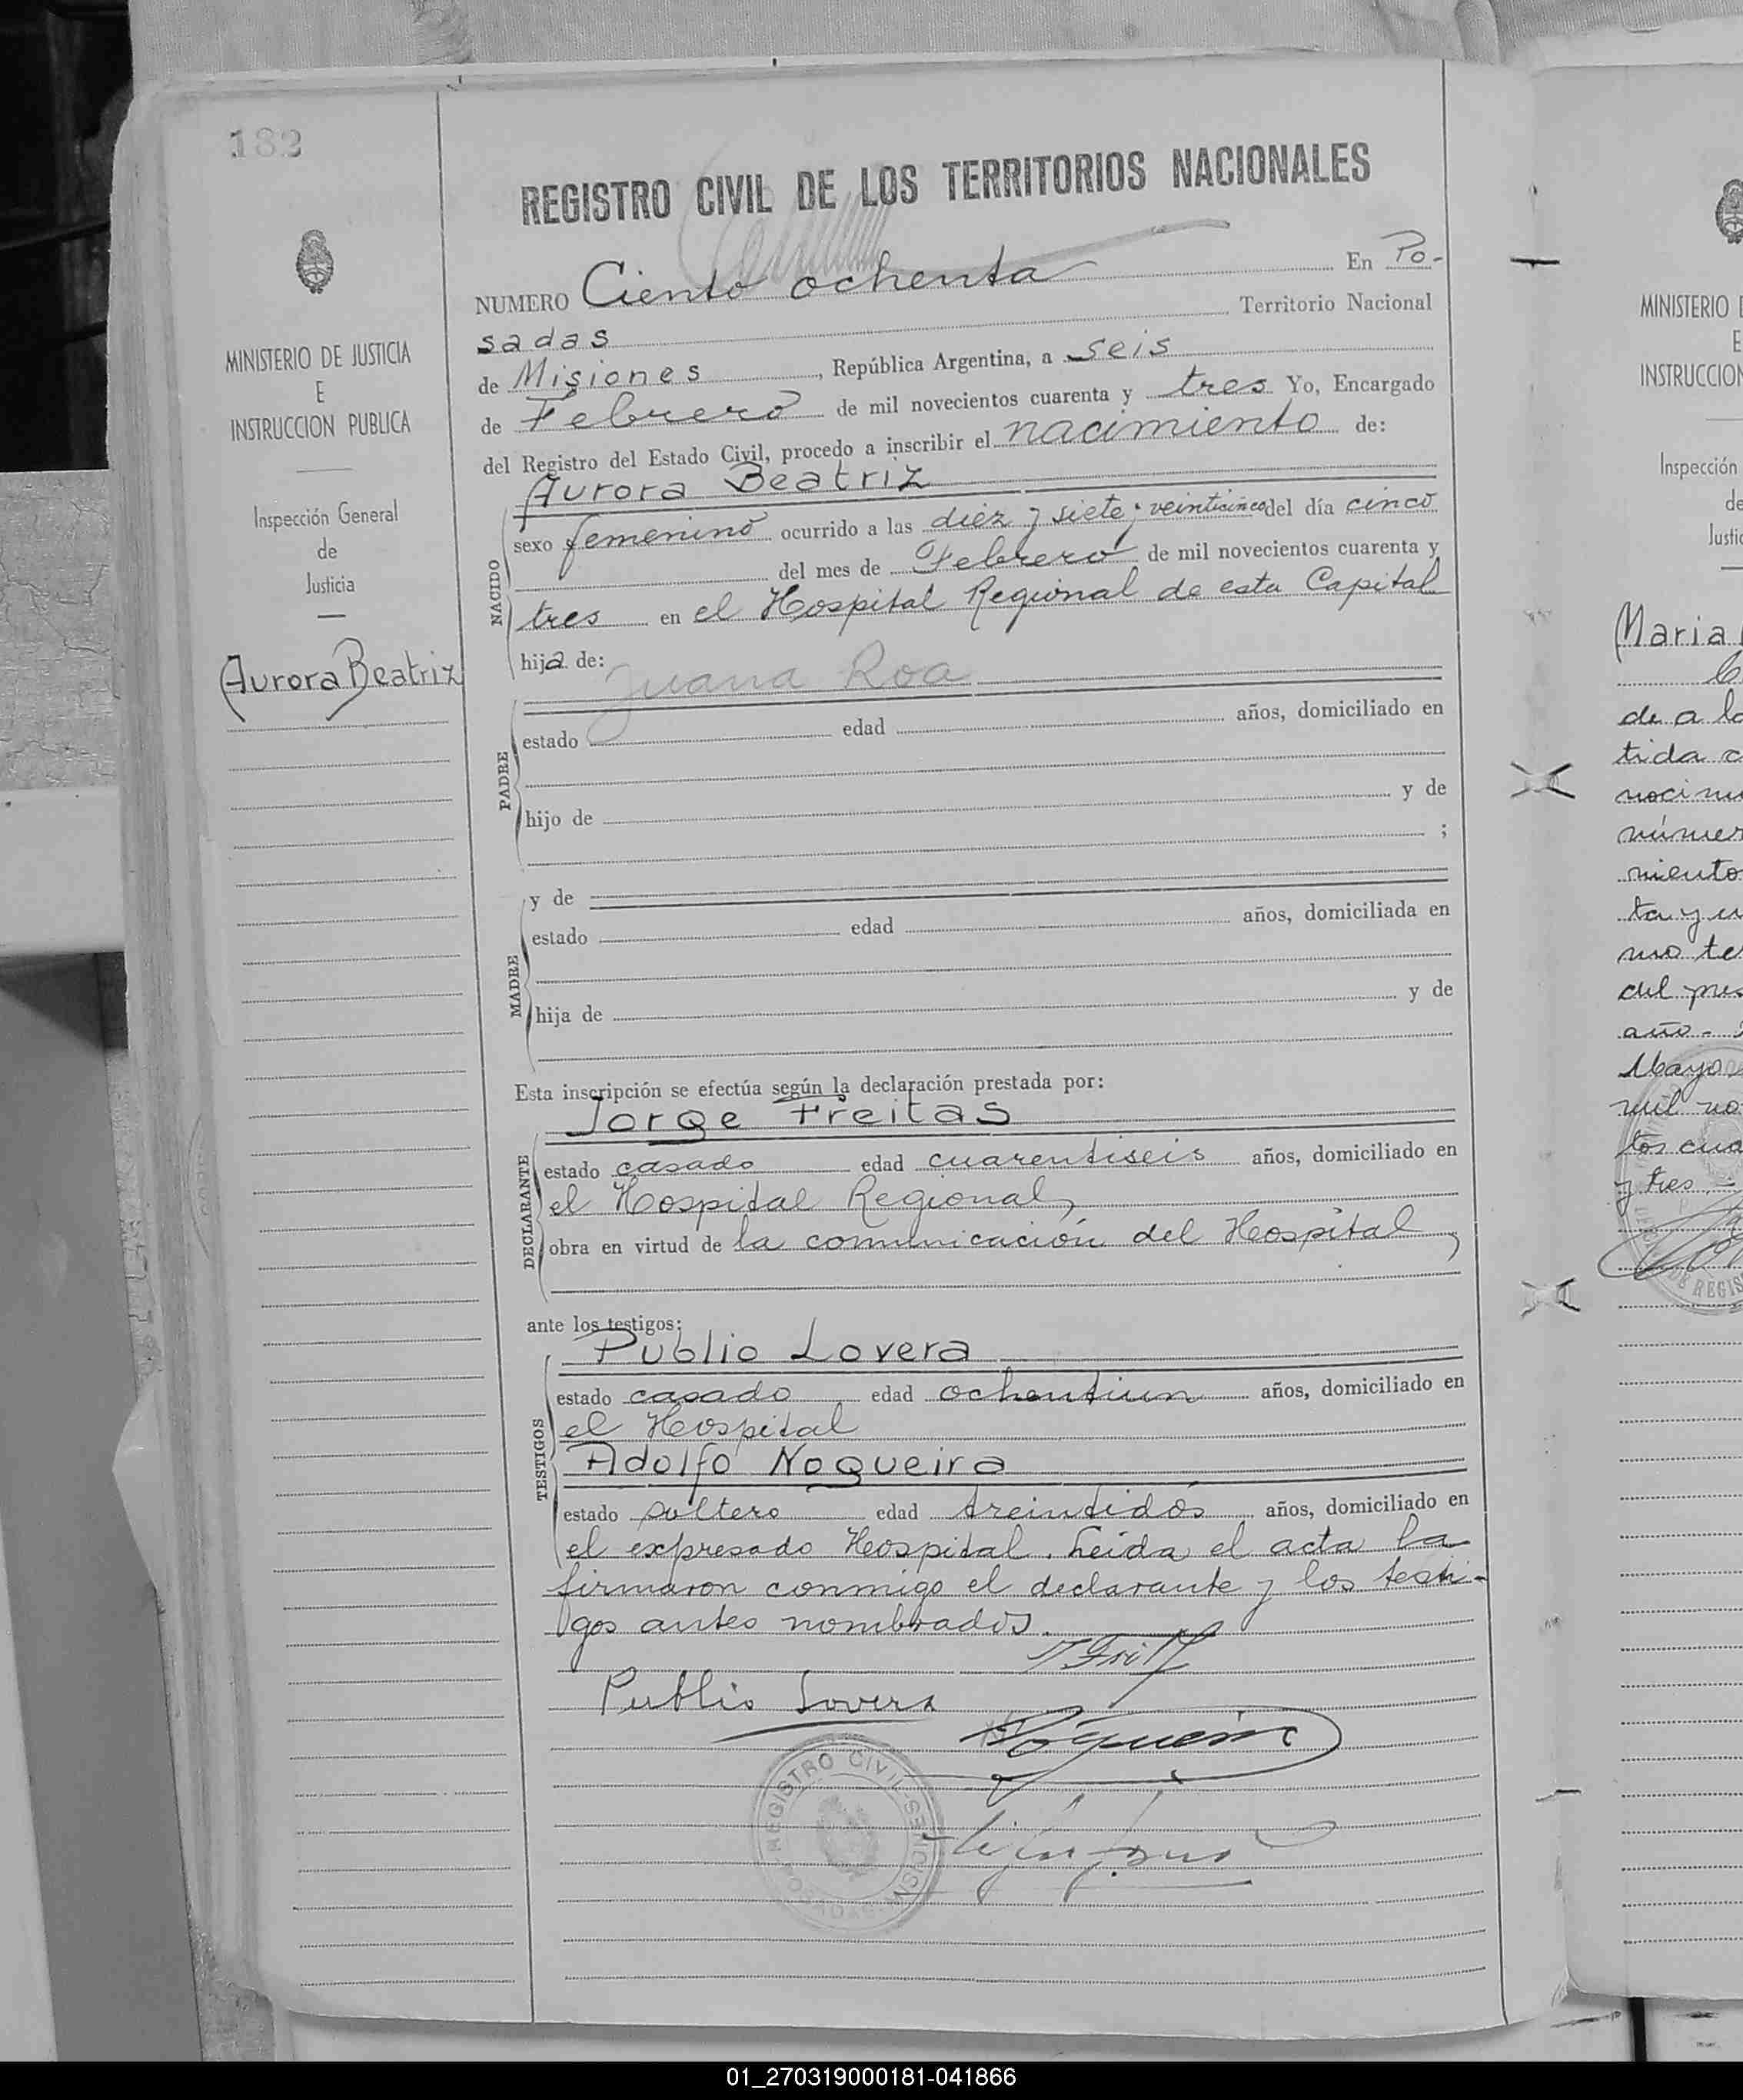 182
REGISTRO CIVIL DE LOS TERRITORIOS NACIONALES
NUMERO Ciento ochenta En Po-
sadas Territorio Nacional
de Misiones, República Argentina, a seis
de Febrero de mil novecientos cuarenta y tres Yo, Encargado
del Registro del Estado Civil, procedo a inscribir el nacimiento de:
MINISTERIO DE JUSTICIA
E
INSTRUCCION PUBLICA
Inspección General
de
Justicia
Aurora Beatriz
NACIDO
Aurora Beatriz
sexo femenino ocurrido a las diez y siete y veinticinco del día cinco
del mes de Febrero de mil novecientos cuarenta y
tres en el Hospital Regional de esta Capital
hija de:
Juana Roa
PADRE
estado edad años, domiciliado en
hijo de y de
;
MADRE
y de
estado edad años, domiciliada en
hija de y de
Esta inscripción se efectúa según la declaración prestada por:
DECLARANTE
Jorge Freitas
estado casado edad cuarentiseis años, domiciliado en
el Hospital Regional,
obra en virtud de la comunicación del Hospital,
ante los testigos:
TESTIGOS
Publio Lovera
estado casado edad ochentiun años, domiciliado en
el Hospital
Adolfo Nogueira
estado soltero edad treintidós años, domiciliado en
el expresado Hospital. Leida el acta la
firmaron conmigo el declarante y los testi-
gos antes nombrados.
Publio Lovera
Nogueira
REGISTRO CIVIL
MINISTERIO
E
INSTRUCCION
Inspección
de
Justic
Maria
de a la
tida
número
miento
ta y
mo te
del pres
año.
Mayo
mil no
tos cua
y tres
DE REGIS
01_270319000181-041866